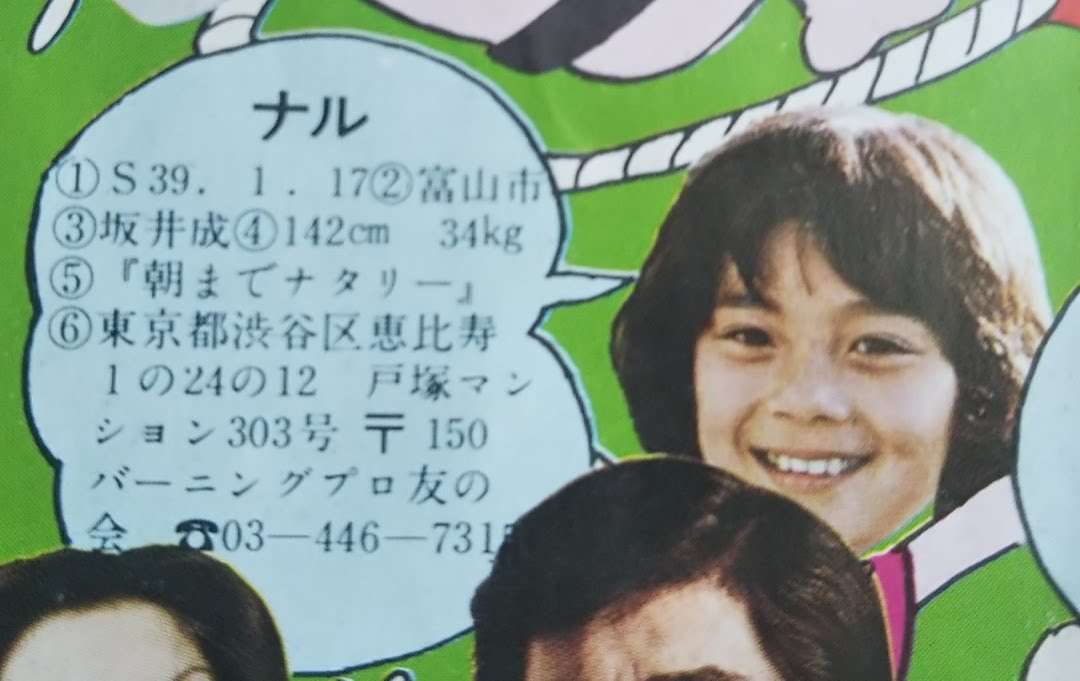 ナル
①S39．1．17②富山市
③坂井成④142cm 34kg
⑤『朝までナタリー』
⑥東京都渋谷区恵比寿
1の24の12 戸塚マン
ション303号 〒150
バーニングプロ友の
会 ☎03—446—731